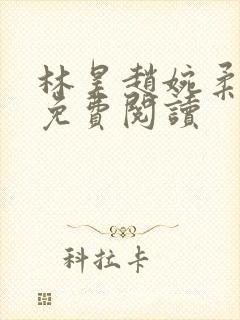 林昊趙婉柔
免費閱讀
科拉卡